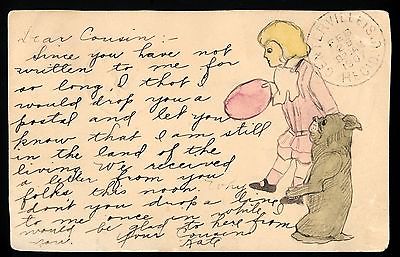 Dear Cousin:-
Since you have not
written to me for
so long, I thot I
would drop you a
postal and let you
know that I am still
in the land of the
living. We received
a letter from you
folks this noon. Why
don't you drop a line
to me once in while
would be glad to here from
you. Your Cousin
Kate
FEB
REC'D